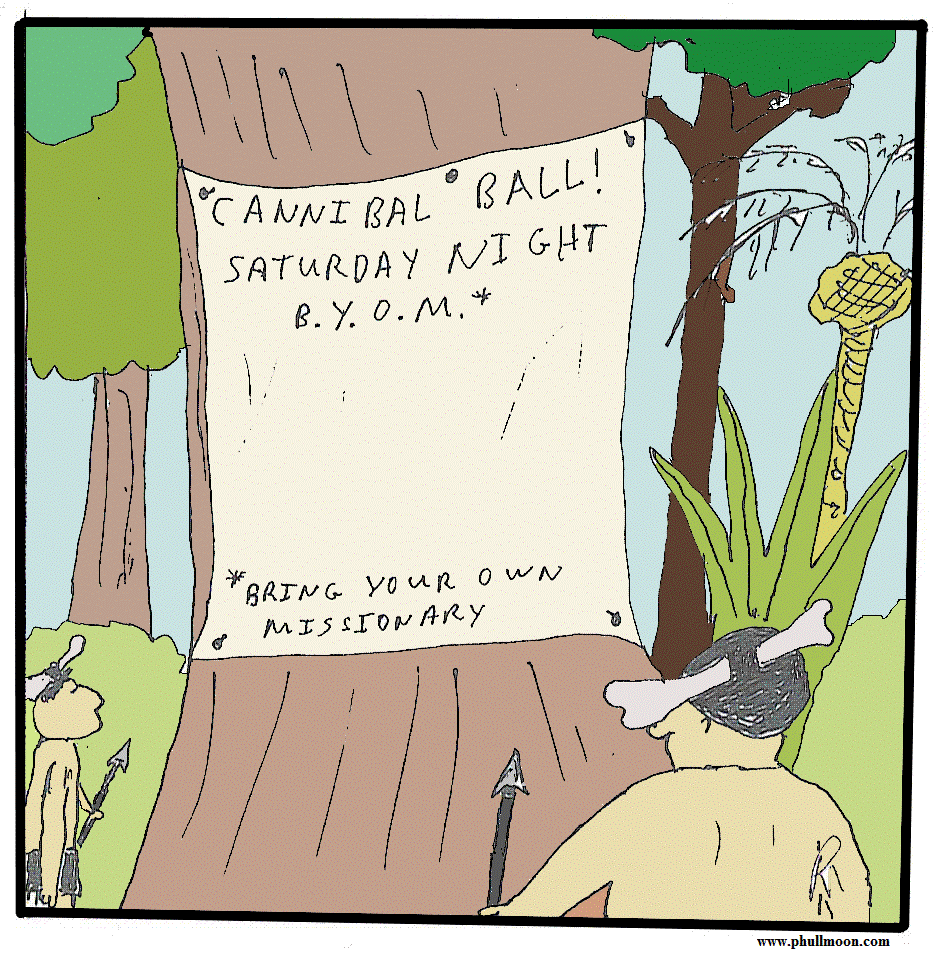 CANNIBAL BALL!
SATURDAY NIGHT
B.Y.O.M.*
*BRING YOUR OWN
MISSIONARY
www.phullmoon.com